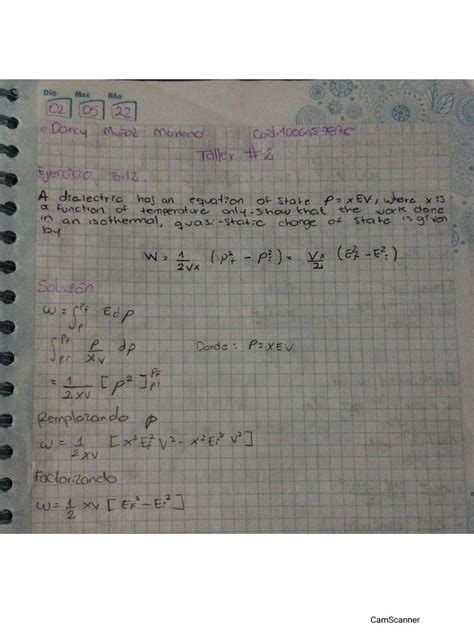 Dia Mes Año
02 05 22
Darcy Muñoz Moreno
Taller # 2
Ejercicio 5.12
A dielectric has an equation of state P = xEV, where x is
a function of temperature only. Show that the work done
in an isothermal, quasi-static change of state is given
by
W = 1/2Vx (P²f - P²i) = Vx/2 (E²f - E²i)
Solución
W = ∫Pi^Pf E dp
∫Pi^Pf P/xV dp Donde: P = xEV
= 1/2xV [P²]Pi^Pf
Remplazando P
W = 1/2xV [x²E²f V² - x²Ei² V²]
Factorizando
W = 1/2 xV [Ef² - Ei²]
CamScanner